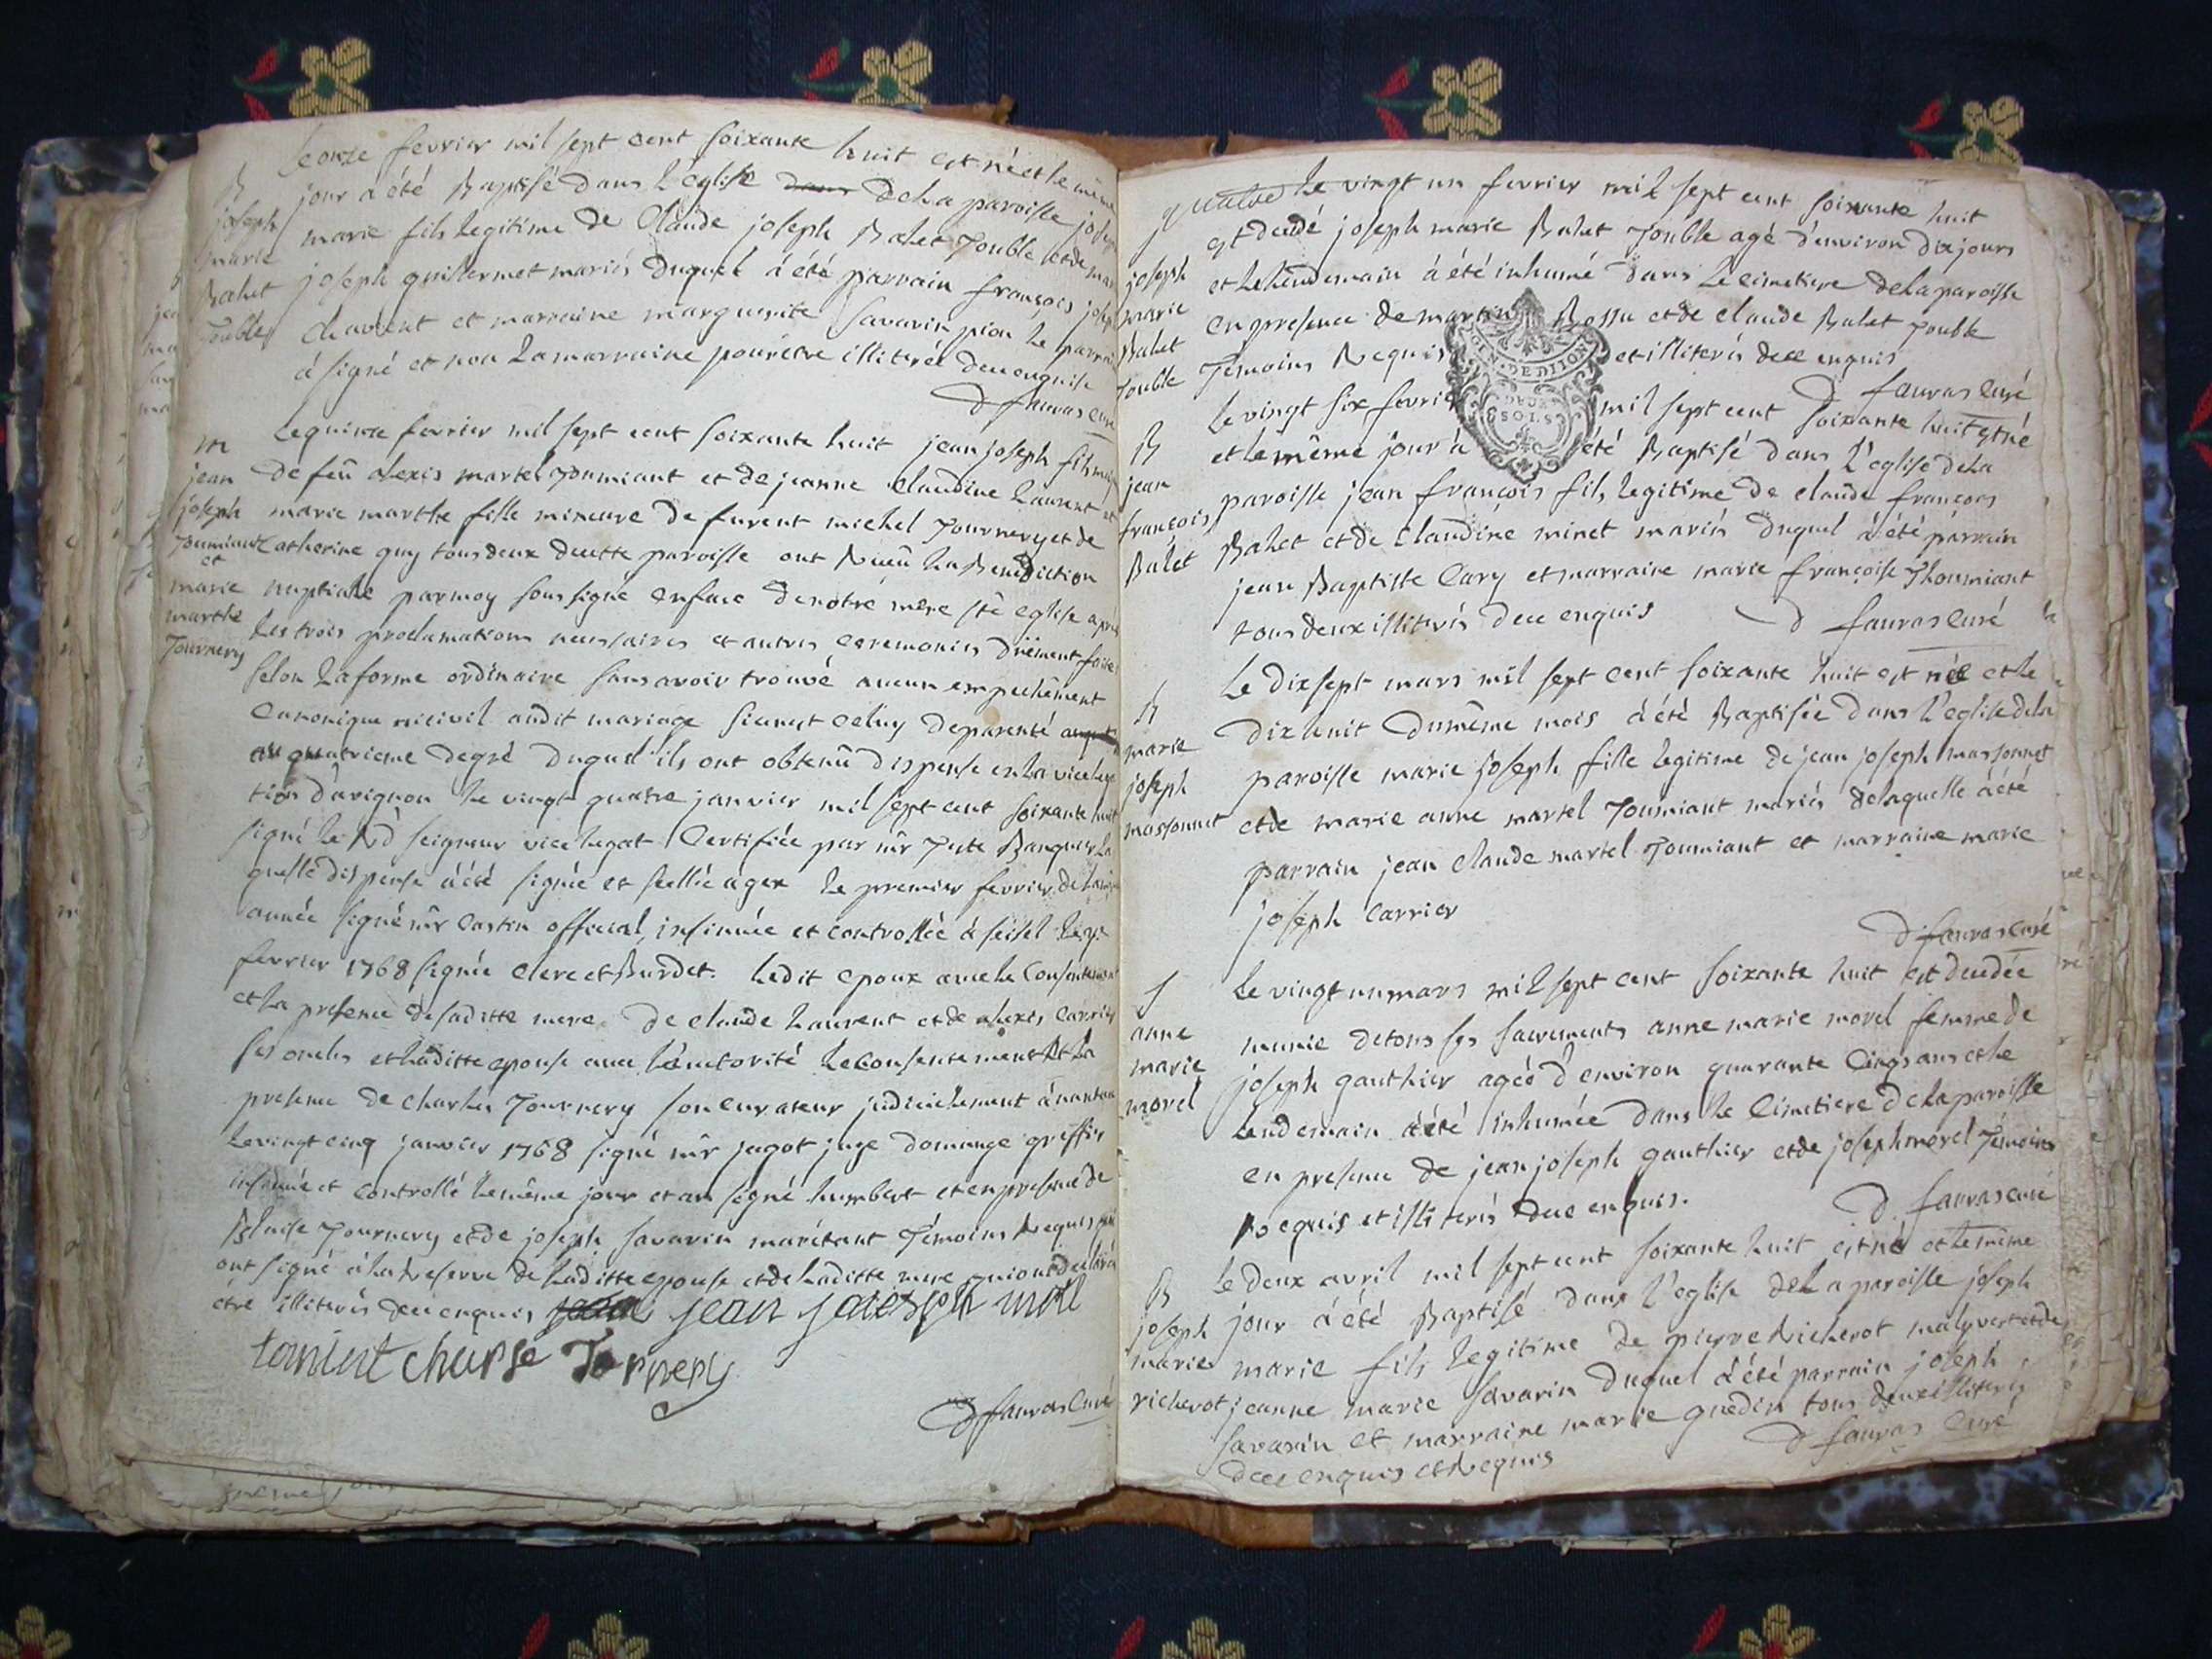 Le onze fevrier mil sept cent soixante huit est né et le même
B jour a été Baptisé dans l'église dans de la paroisse joseph
joseph marie fils legitime de Claude joseph Balet Jouble et de marie
marie joseph guillermet mariés duquel a été parrain françois joseph
Balet Chavent et marraine marguerite Savarin pion le parrain
Jouble a signé et non la marraine pour être illiterée de ce enquise
D favras curé
m Le quinze fevrier mil sept cent soixante huit jean joseph fils majeur
jean de feû alexis martel Joumiant et de jeanne Claudine Laurent et
joseph marie marthe fille mineure de furent michel Journery et de
Joumiant Catherine guy tous deux de cette paroisse ont Receû la Benediction
et
marie nuptiale par moy soussigné en face de notre mere ste eglise après
marthe les trois proclamations necessaires et autres ceremonies düement faites
Journery selon la forme ordinaire sans avoir trouvé aucun empechêment
canonique ni civil audit mariage si ce n'est celuy de parenté
au quatrieme degré duquel ils ont obtenû dispense en la vicelega
tion d'avignon le vingt quatre janvier mil sept cent soixante huit
signé le Rd seigneur vice legat Certifiée par mr Juste Banquier la
quelle dispense a été signée et scellée a gex le premier fevrier de la même
année signé mr Castin official, insinuée et controllée a seisel le 9e
fevrier 1768 signée clerc et Burdet. Ledit epoux avec le Consentement
et la presence de sa ditte mere, de Claude Laurent et de alexis Carrier
ses oncles et laditte epouse avec l'autorité le consentement et la
presence de Charles Journery son curateur judiciellement a nantua
le vingt cinq janvier 1768 signé mr jagot juge domange greffier
insinué et controllé le même jour et an signé humbert et en presence de
Blaise Journery et de joseph Savarin maréteant Témoins Requis qui
ont signé a la Reserve de laditte epouse et de laditte mere qui ont declaré
être illiterés de ce enquis jean jean joiesph motl
tomint churse Jornery
D favras Curé
quatre Le vingt un fevrier mil sept cent soixante huit
est decedé joseph marie Balet Jouble agé d'environ dix jours
joseph et le lendemain a été inhumé dans le cimetiere de la paroisse
marie en presence de martin Bossu et de Claude Balet Jouble
Balet Jemoins Requis et illiterés de ce enquis
Jouble D favras curé
GEN. DE DIJON
DEUX
SOLS
B Le vingt six fevrier mil sept cent soixante huit est né
jean et le même jour a été Baptisé dans l'eglise de la
françois paroisse jean françois fils legitime de claude françois
Balet Balet et de Claudine minet mariés duquel a été parrain
jean Baptiste Cary et marraine marie françoise Jhoumiant
tous deux illiterés de ce enquis D favras curé
B Le dix sept mars mil sept cent soixante huit est née et le
marie dix huit du même mois a été Baptisée dans l'eglise de la
joseph paroisse marie joseph fille legitime de jean joseph massonnet
massonnet et de marie anne martel Joumiant mariés de laquelle a été
parrain jean claude martel Joumiant et marraine marie
joseph Carrier
D favras curé
S Le vingt un mars mil sept cent soixante huit est decedée
anne munie de tous ses sacrements anne marie morel femme de
marie joseph gauthier agée d'environ quarante cinqs ans et le
morel lendemain a été inhumée dans le Cimetiere de la paroisse
en presence de jean joseph gauthier et de joseph morel Témoins
Requis et illiterés de ce enquis. D. favras curé
B Le deux avril mil sept cent soixante huit est né et le même
joseph jour a été Baptisé dans l'eglise de La paroisse joseph
marie marie fils legitime de pierre Richerot malyvert et de
richerot jeanne marie Savarin duquel a été parrain joseph
savarin et marraine marie guedin tous deux illiterés
de ce enquis et Requis D favras Curé